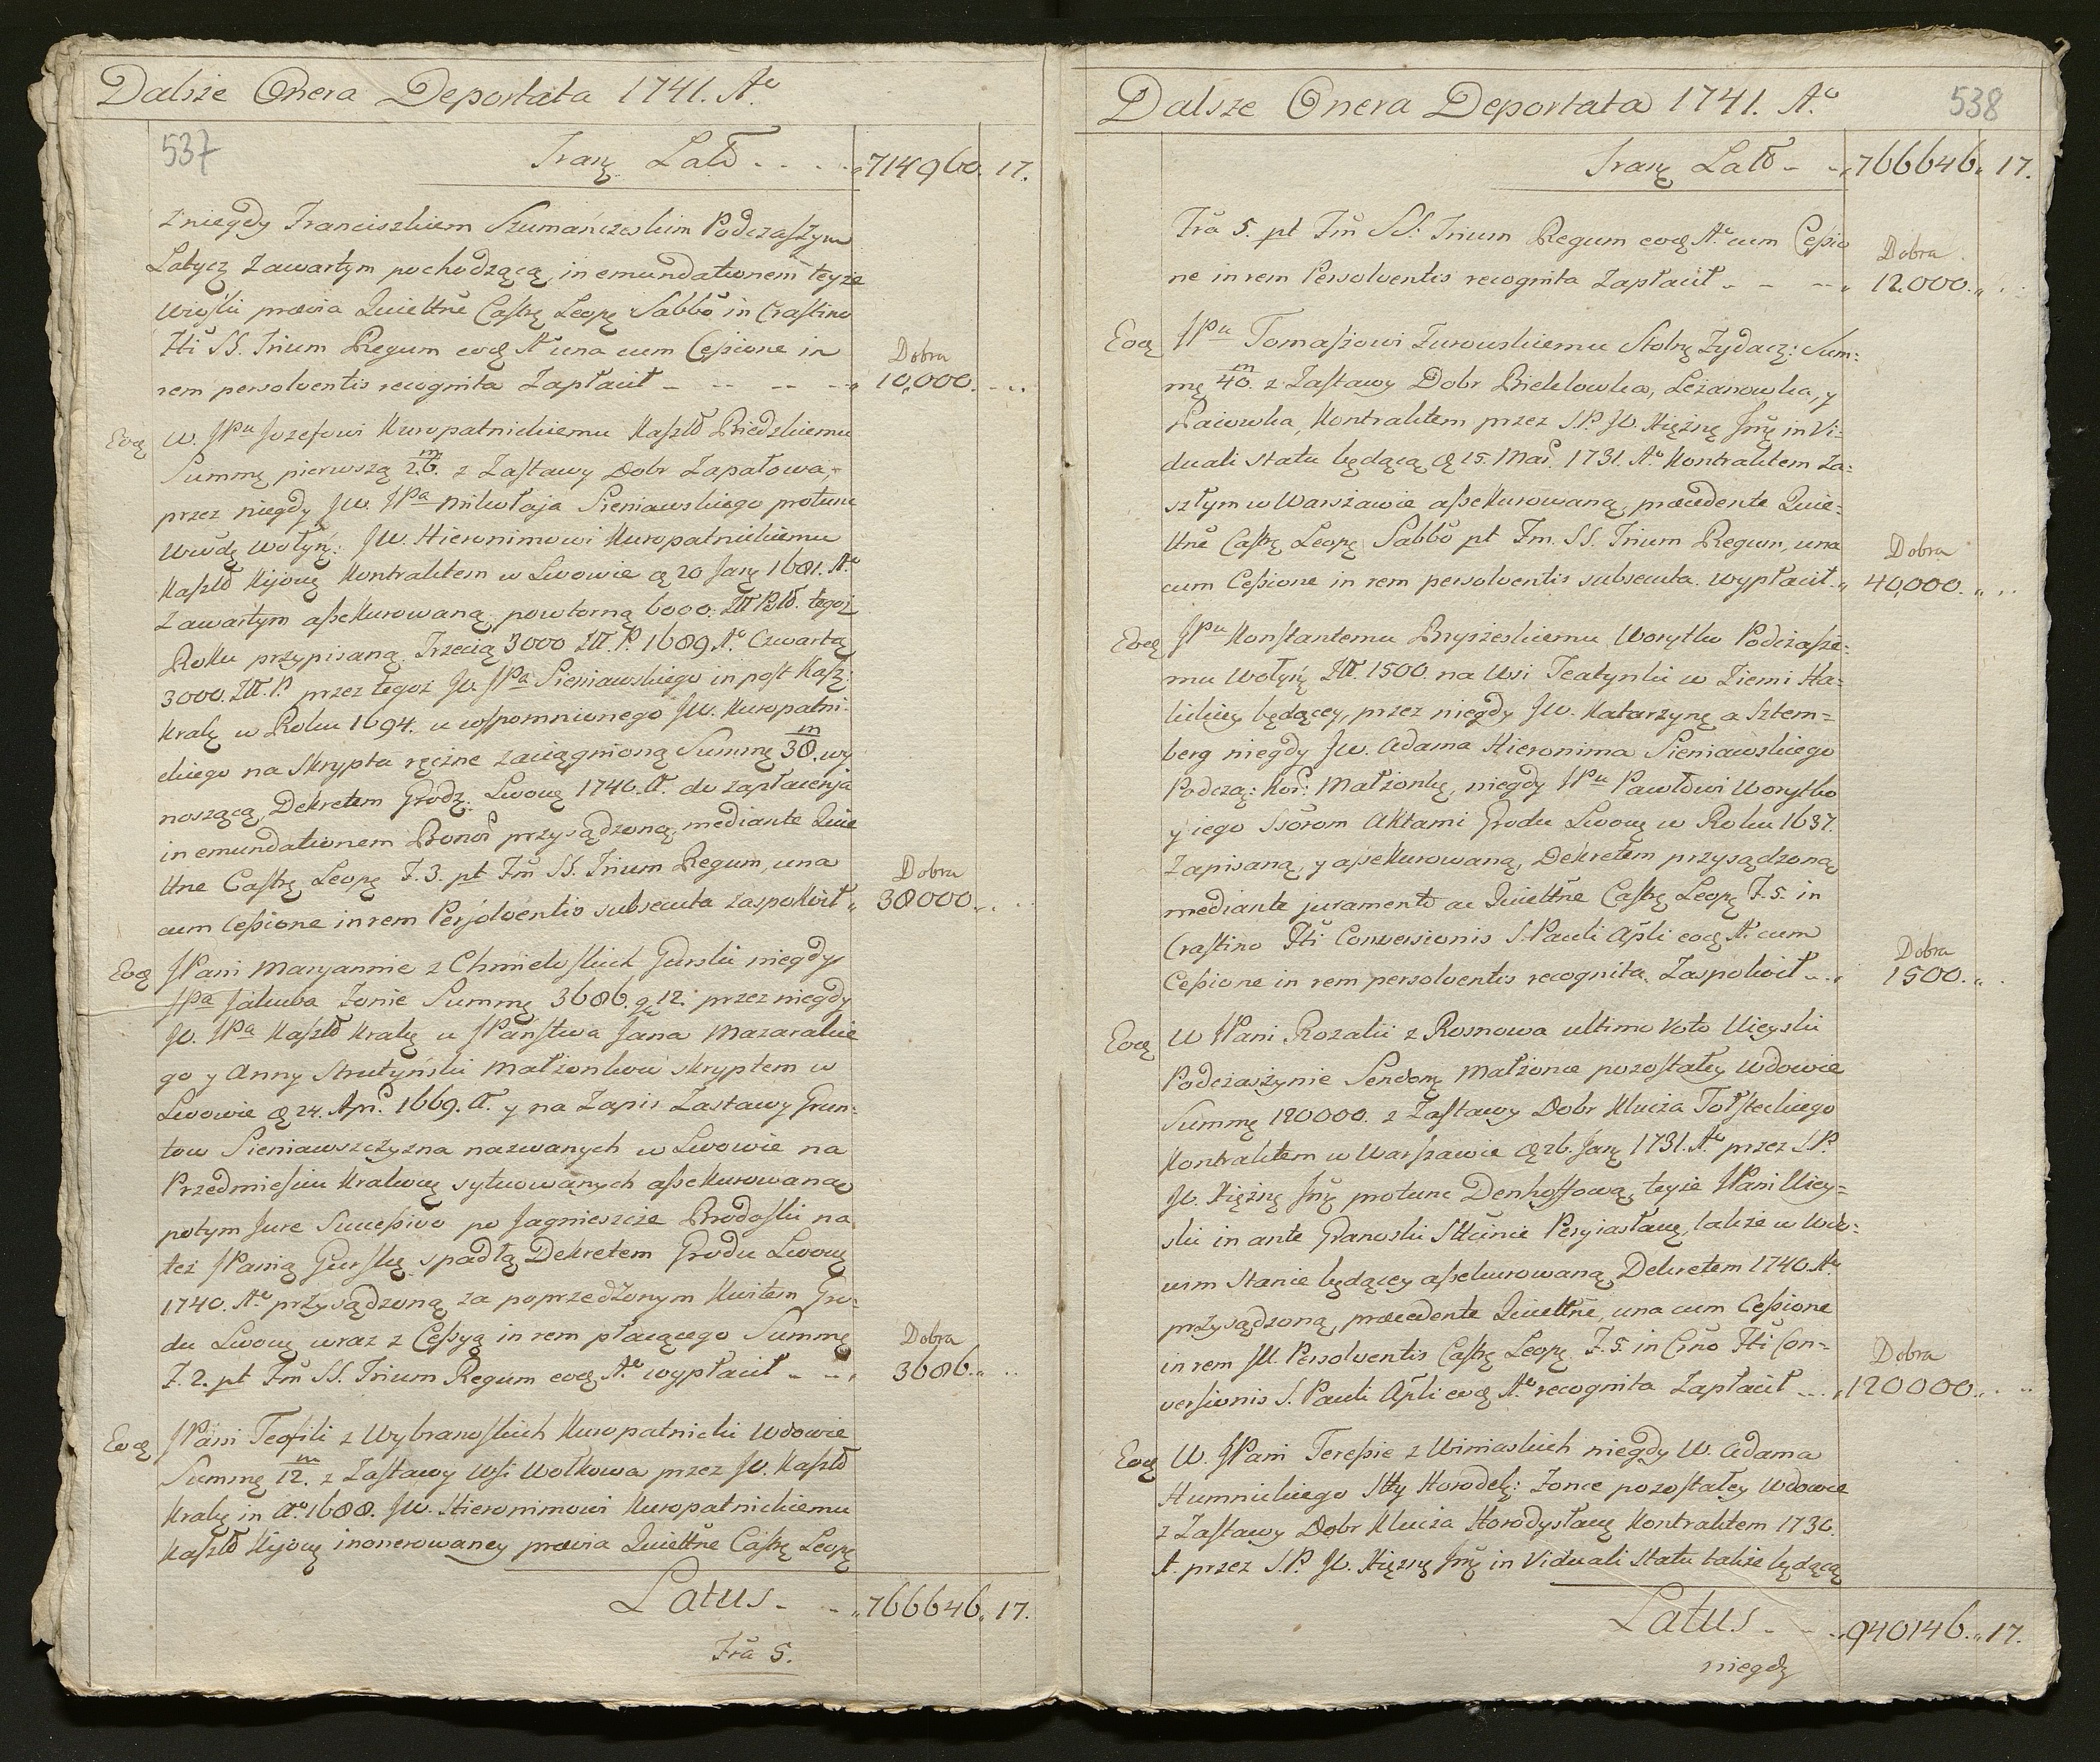 Dalsze Onera Deportata 1741. Aº
537
Tranz Latῦ - - - 714960. 17.
z niegdy Franciszkiem Szumańczeskim Podczaszym
Latycz zawartym pochodzącą, in emundationem teyże
Wioski prævia Quiettne Castrę Leopę Sabbo in Crastino
Fti SS. Trium Regum eodę Aº una cum Cessione in
Dobra
rem persolventis recognita Zapłacił - - - - 10,000. - . .
Eodę W. JPu Jozefowi Kuropatnickiemu Kasztῦ Biedzkiemu
Summę pierwszą 26.m z Zastawy Dobr Zapałowa,
przez niegdy JW. JPa Mikołaja Sieniawskiego protunc
Wwodę Wołyń: JW. Hieronimowi Kuropatnickiemu
Kasztῦ Kijowę Kontraktem w Lwowie dę 20 Janę 1681. Aº
zawartym assekurowaną, powtorną 6000. Złł Pol. tegoż
Roku przypisaną. Trzecią 3000 Złł. P. 1689 Aº Czwartą
3000. Złł. P. przez tegoż JW. JPa Sieniawskiego in post Kasz:
Krakę w Roku 1694. u wspomnionego JW. Kuropatni-
ckiego na Skrypta ręczne zaciągnioną Summę 38.m wy
noszącą, Dekretem Grodz. Lwowę 1740. A. do zapłacenia
in emundationem Bonor przysądzoną, mediante Quie
ttne Castrę Leopę F. 3. pt Fm SS. Trium Regum, una
Dobra
cum Cessione in rem Persolventis subsecuta zaspokoił " 38000. . .
Eodę JPani Maryannie z Chmieloskich Gurski niegdy
JPa Jakuba Zonie Summę 3686. g. 12. przez niegdy
JW. JPa Kasztῦ Krakę u JPaństwa Jana Mazarakie
go y Anny Strutyński Małzonkow Skryptem w
Lwowie dę 24. Apr. 1669. A. y na Zapis Zastawy Grun-
tow Sieniawszczyzna nazwanych w Lwowie na
Przedmiesciu Krakowę sytuowanych assekurowaną
potym Jure Successivo po Jagnieszcze Brodoski na
też JPanią Gurskę spadłą, Dekretem Grodu Lwowę
1740. Aº przysądzoną za poprzedzonym Kwitem Gro-
du Lwowę wraz z Cessyą in rem płacącego Summę
Dobra
F. 2. pt Fm SS. Trium Regum eodę Aº wypłacił - - 3686. " . .
Eodę JPani Teofili z Wybranoskich Kuropatnicki Wdowie
Summę 12.m z Zastawy Wsi Wołkowa przez JW. Kasztῦ
Krakę in Aº 1688. JW. Hieronimowi Kuropatnickiemu
Kasztῦ Kijowę inonerowaney prævia Quiettne Castrę Leopę
Latus - - " 766646. " 17.
Fra 5.
Dalsze Onera Deportata 1741. Aº
538
Tranz Latῦ - - " 766646. " 17.
Fra 5. pt Fm SS. Trium Regum eodę Aº cum Cessio
Dobra
ne in rem Persolventis recognita Zapłacił - - - - " 12000. " . .
Eodę JPu Tomaszowi Zurowskiemu Stolnę Zydacz: Sum-
mę 40.m z Zastawy Dobr Bieklowka, Leżanowka, y
Paiowka, Kontraktem przez S.P. JW. Xiężnę Jmę in Vi-
duali statu będącą dę 15. Mai 1731. Aº Kontraktem Za-
szłym w Warszawie assekurowaną, præcedente Quie-
ttne Castrę Leopę Sabbo pt Fm. SS. Trium Regum, una
Dobra
cum Cessione in rem persolventis subsecuta wypłacił " 40,000. " . .
Eodę JPu Konstantemu Bryszeskiemu Worytko Podczasze-
mu Wołyń Złł. 1500. na Wsi Teatynki w Ziemi Ha-
lickiey będącey, przez niegdy JW. Katarzynę a Sztem-
berg niegdy JW. Adama Hieronima Sieniawskiego
Podcza: Kor: Małżonkę, niegdy JPu Pawłowi Worytko
y iego Ssorom Aktami Grodu Lwowę w Roku 1637.
zapisaną, y assekurowaną, Dekretem przysądzoną
mediante juramento ac Quiettne Castrę Leopę F. 5. in
Crastino Fti Conversionis S. Pauli Apli eodę Aº cum
Dobra
Cessione in rem persolventis recognita Zaspokoił - . 1500. " .
Eodę W JPani Rozalii z Rosnowa ultimo Voto Uieyski
Podczaszynie Sendomę Małzonce pozostałey Wdowie
Summę 120000. z Zastawy Dobr Klucza Tołsteckiego
Kontraktem w Warszawie dę 26. Janę 1731. Aº przez S.P.
JW. Xiężnę Jmę protunc Denhoffową, teyże JPani Uiey-
ski in ante Granoski Sttcinie Peryiasławę, także w Wdo-
wim stanie będącey assekurowaną Dekretem 1740. Aº
przysądzoną, præcedente Quiettne, una cum Cessione
in rem JW. Persolventis Castrę Leopę F. 5. in Crno Fti Con-
Dobra
versionis S. Pauli Apli eodę Aº recognita Zapłacił - . . " 120000. . . .
Eodę W. JPani Teressie z Winiaskich niegdy W. Adama
Humnickiego Stty Horodelę: Zonce pozostałey Wdowie
z Zastawy Dobr Klucza Horodysławę Kontraktem 1736.
A. przez S.P. JW. Xiężnę Jmę in Viduali Statu także będącą
Latus - - - 940146. " 17.
niegdy